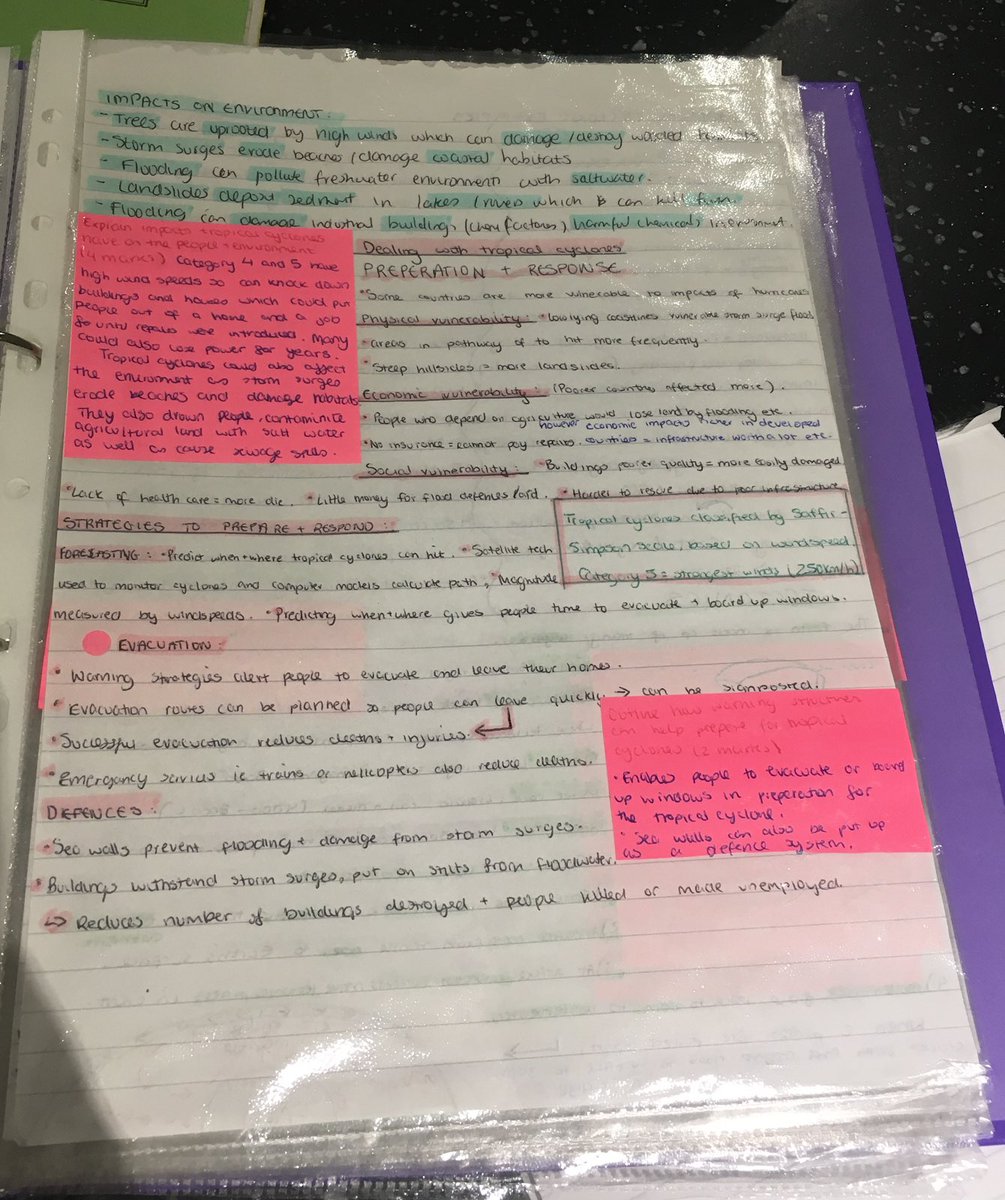 IMPACTS ON ENVIRONMENT:
- Trees are uprooted by high winds which can damage /destroy wooded habitats
- Storm surges erode beaches /damage coastal habitats
- Flooding can pollute freshwater environments with saltwater.
- Landslides deposit sediment in lakes /rivers which can kill fish.
- Flooding can damage industrial buildings, harmful chemicals
Explain impacts tropical cyclones
have on the people + environment
(4 marks) Category 4 and 5 have
high wind speeds so can knock down
buildings and houses which could put
people out of a home and a job
so until repairs were introduced. Many
could also lose power for years.
Tropical cyclones could also affect
the environment as storm surges
erode beaches and damage habitats
They also drown people, contaminate
agricultural land with salt water
as well as cause sewage spills.
Dealing with tropical cyclones
PREPERATION + RESPONSE
• Some countries are more vulnerable to impacts of hurricanes
Physical vulnerability: • Low lying coastlines vulnerable storm surge flood
• areas in pathway of tc hit more frequently.
• Steep hillsides = more landslides.
Economic vulnerability: (Poorer countries affected more).
• People who depend on agriculture would lose land by flooding etc.
however economic impacts higher in developed
• No insurance = cannot pay repairs. countries = infrastructure worth a lot etc.
Social vulnerability: • Buildings poorer quality = more easily damaged
• Lack of health care = more die. • Little money for flood defences. • Harder to rescue due to poor infrastructure
STRATEGIES TO PREPARE + RESPOND:
Tropical cyclones classified by Saffir-
Simpson scale, based on windspeed.
Category 5 = strongest winds (250km/h)
FORECASTING: • Predict when + where tropical cyclones can hit. • Satellite tech
used to monitor cyclones and computer models calculate path, • Magnitude
measured by windspeeds. • Predicting when + where gives people time to evacuate + board up windows.
EVACUATION:
• Warning strategies alert people to evacuate and leave their homes.
• Evacuation routes can be planned so people can leave quickly → can be signposted.
• Successful evacuation reduces deaths + injuries.
• Emergency services ie trains or helicopters also reduce deaths.
Outline how warning structures
can help prepare for tropical
cyclones (2 marks)
• Enables people to evacuate or board
up windows in preparation for
the tropical cyclone.
• Sea walls can also be put up
as a defence system.
DEFENCES:
• Sea walls prevent flooding + damage from storm surges.
• Buildings withstand storm surges, put on stilts from floodwater.
↳ Reduces number of buildings destroyed + people killed or made unemployed.